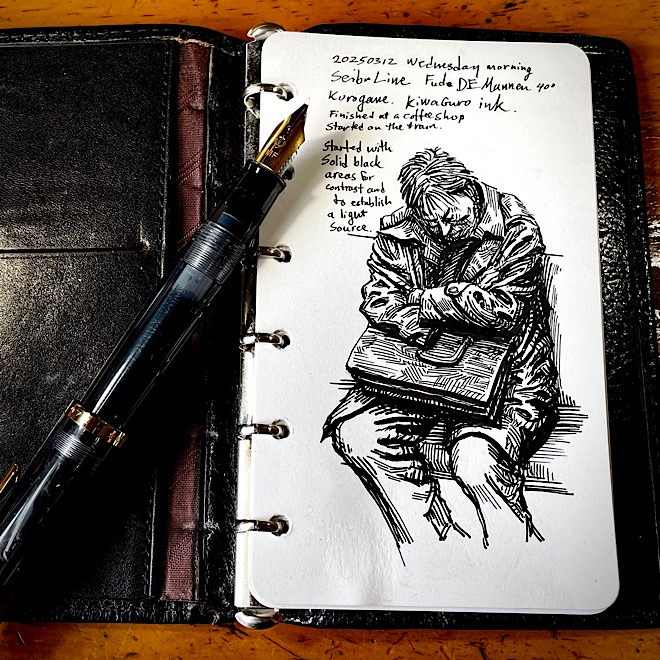 20250312 Wednesday morning
Seibu Line Fude DE Mannen 40°
Kurogane. KiwaGuro ink.
Finished at a coffee shop
Started on the train.
Started with
Solid black
areas for
contrast and
to establish
a light
source.